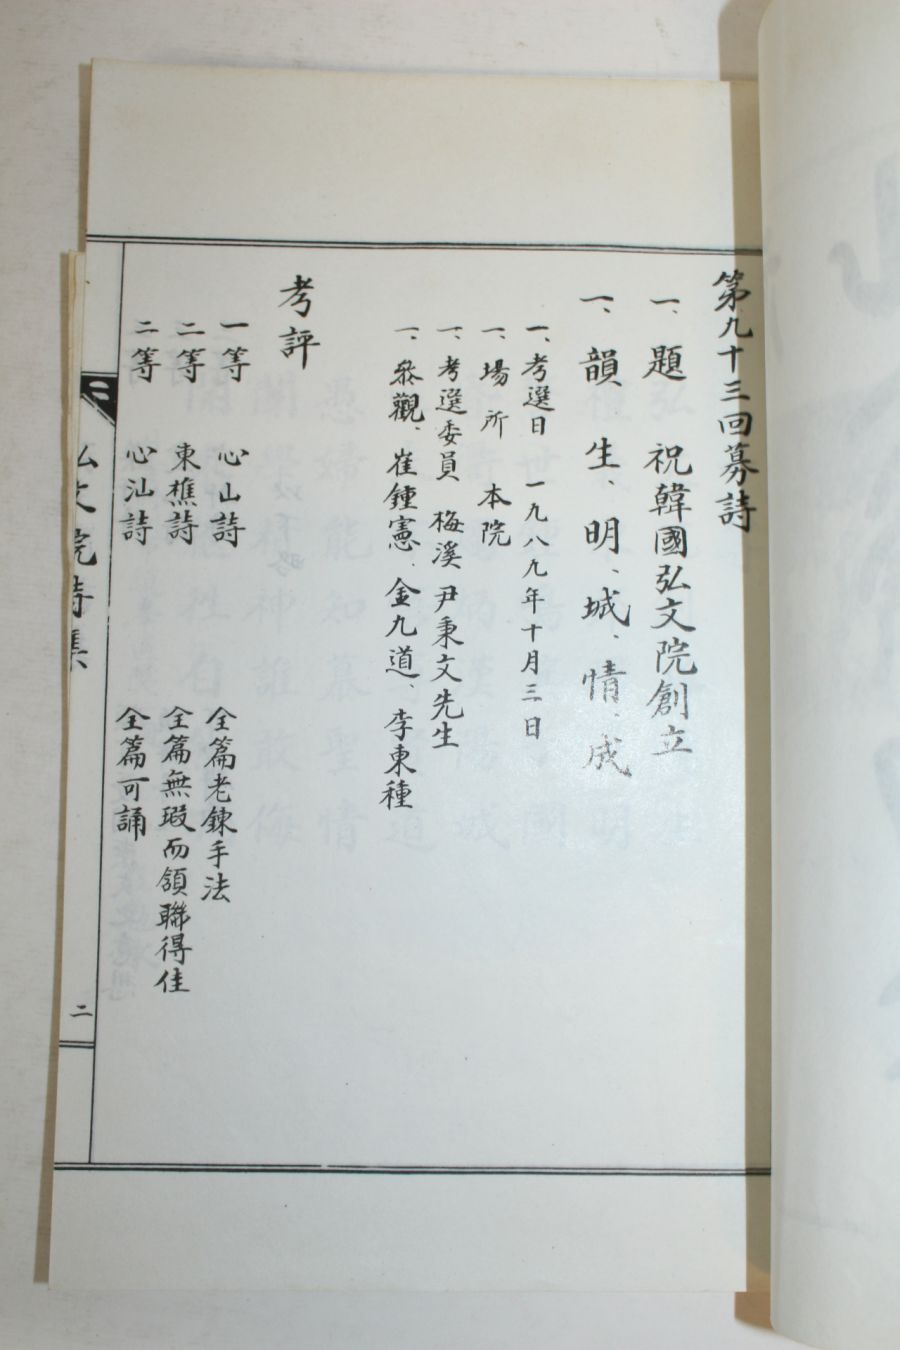 第九十三回募詩
一、題 祝韓國弘文院創立
一、韻 生、明、城、情、成
一、考選日 一九八九年十月三日
一、場所 本院
一、考選委員 梅溪 尹秉文先生
一、參觀、崔鍾憲、金九道、李東種
考評
一等 心山詩 全篇老鍊手法
二等 東樵詩 全篇無瑕而頷聯得佳
二等 心汕詩 全篇可誦
弘文院詩集
二